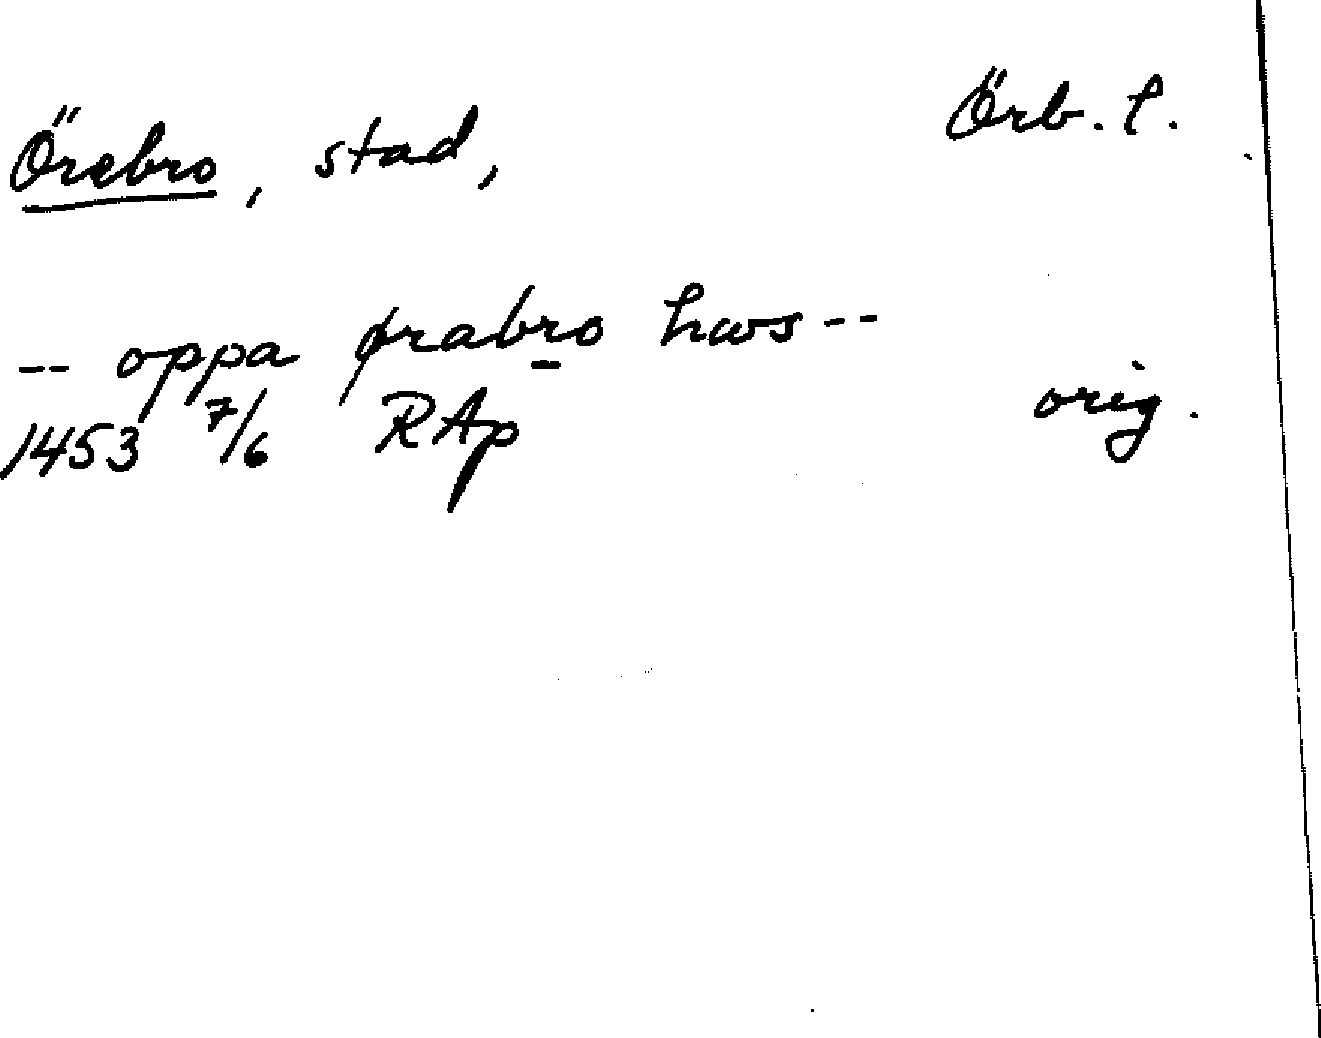 Örebro, stad, Örb. l.
-- oppa ørabro hws --
1453 7/6 RAp orig.